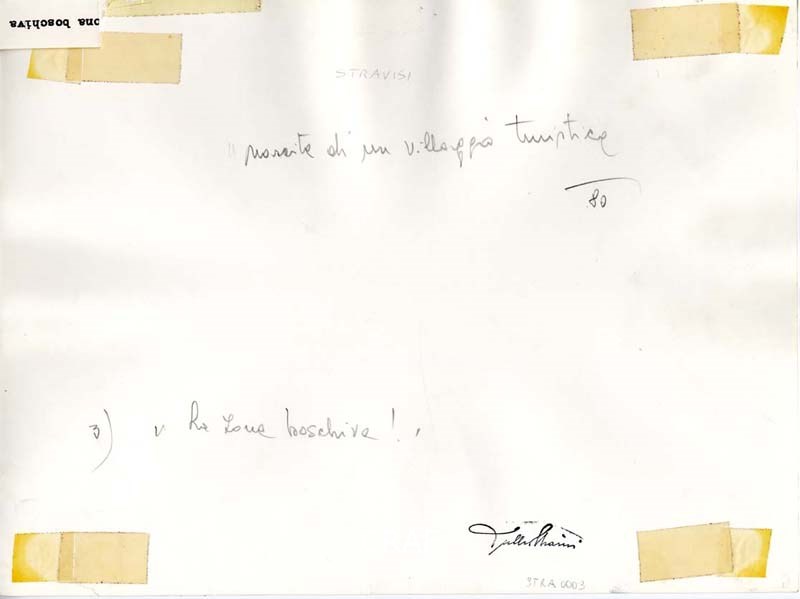 ona boschiva
STRAVISI
"nascita di un villaggio turistico
80
3) " La zona boschiva! "
Tullio Stravisi
STRA 0003